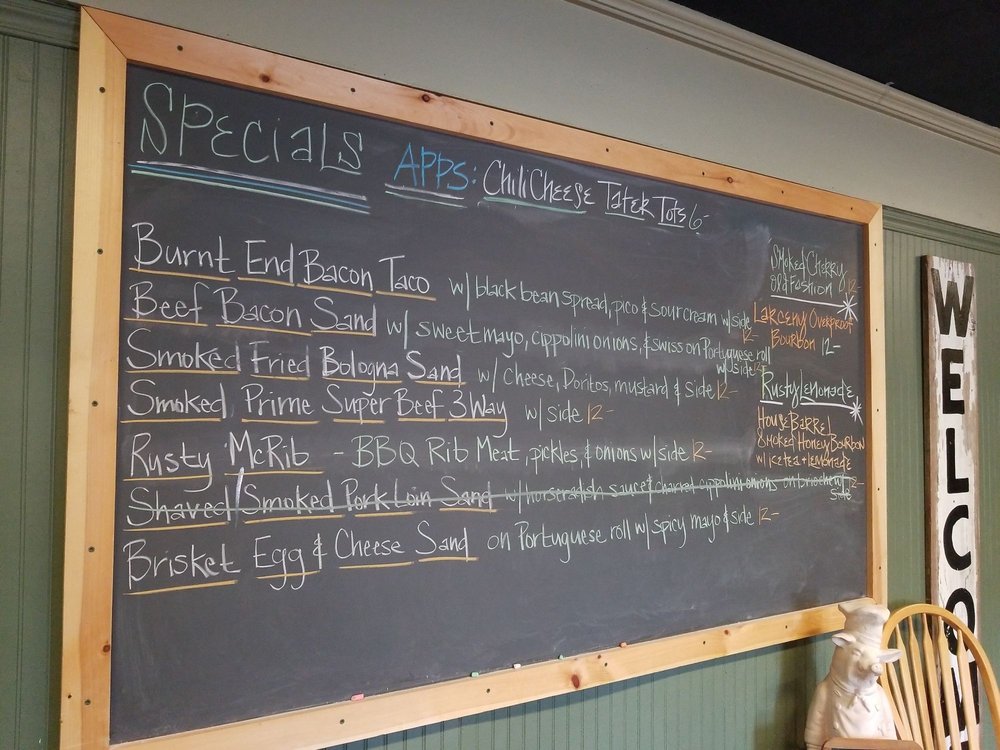 SPECIALS
APPS: Chili Cheese Tater Tots 6-
Burnt End Bacon Taco w/ black bean spread, pico & sour cream w/ side 12-
Beef Bacon Sand w/ sweet mayo, cippolini onions, & swiss on Portuguese roll w/ side 12-
Smoked Fried Bologna Sand w/ Cheese, Doritos, mustard & side 12-
Smoked Prime Super Beef 3 Way w/ side 12-
Rusty McRib - BBQ Rib Meat, pickles, & onions w/ side 12-
Shaved Smoked Pork Loin Sand w/ horseradish sauce & charred cippolini onions on brioche w/ side 12-
Brisket Egg & Cheese Sand on Portuguese roll w/ spicy mayo & side 12-
Smoked Cherry
Old Fashion 12-
Larceny Overproof
Bourbon 12-
Rusty Lemonade
House Barrel
Smoked Honey Bourbon
w/ iced tea + lemonade
WELCO